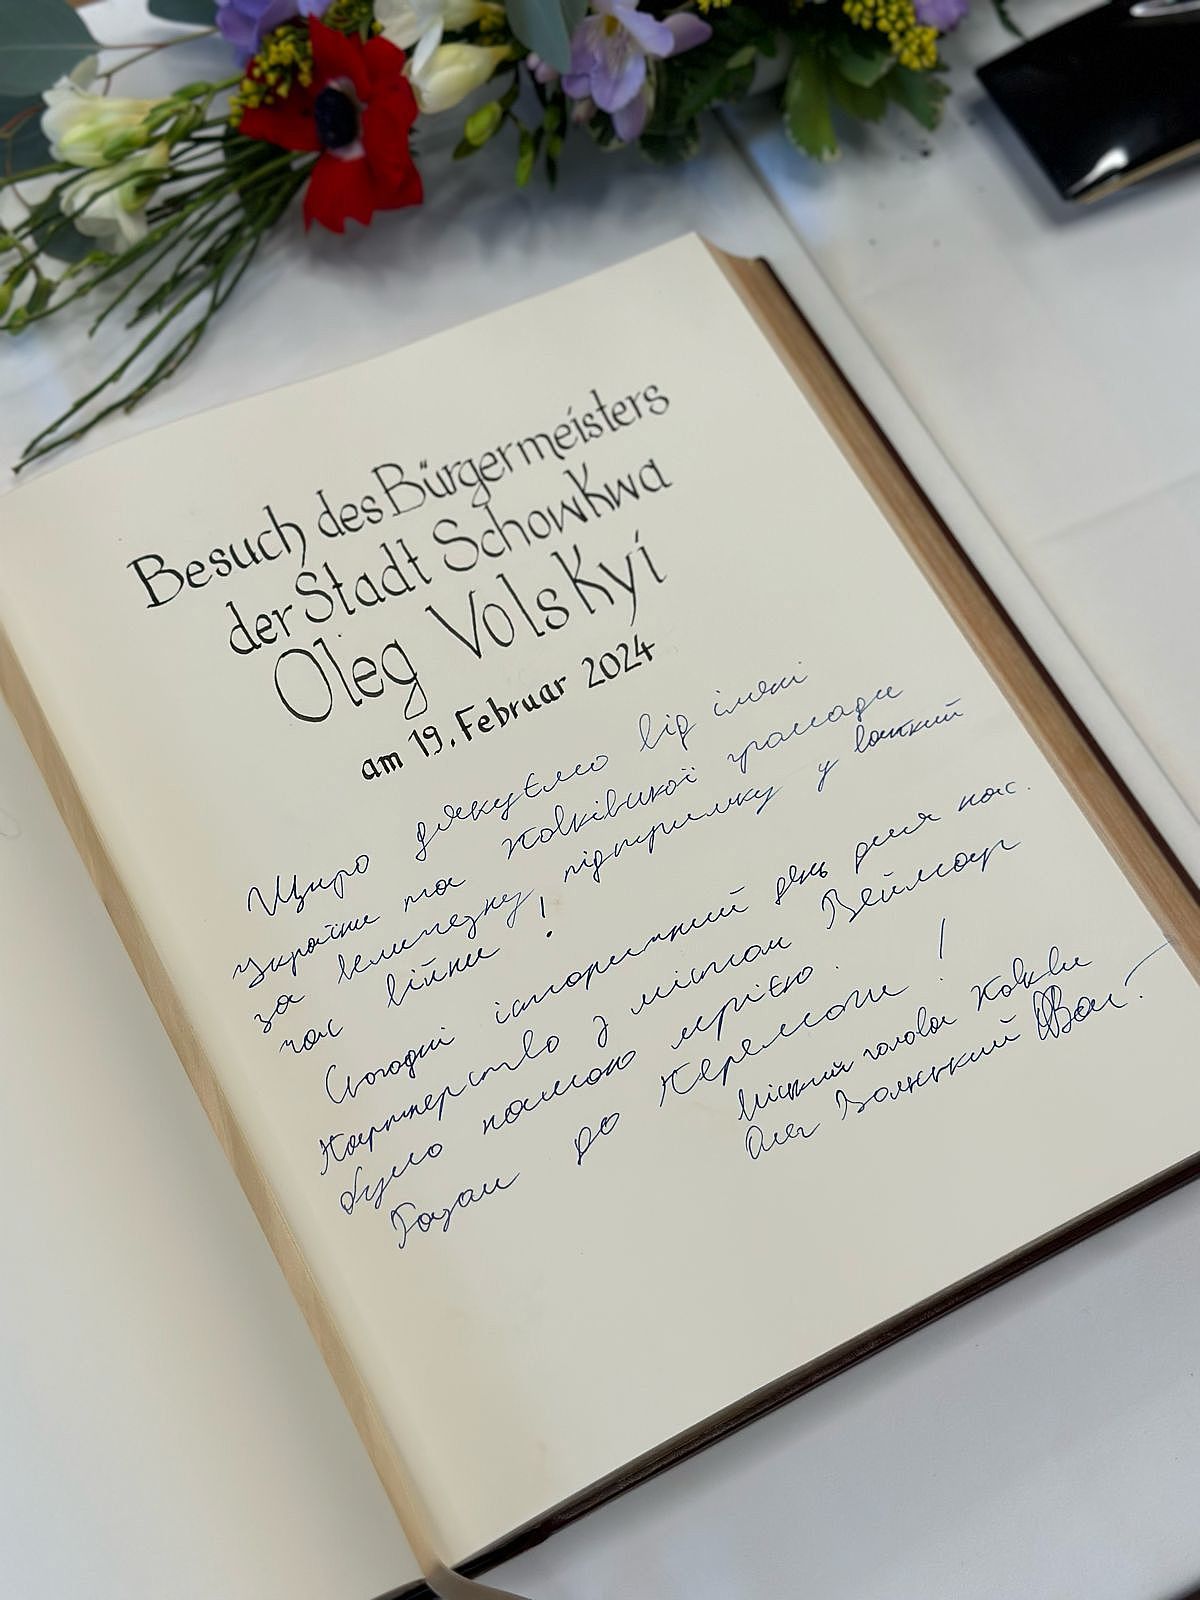 Besuch des Bürgermeisters
der Stadt Schowkwa
Oleg Volskyi
am 19. Februar 2024
Щиро дякуємо від імені
України та Жовківської громади
за величезну підтримку у важкий
час війни!
Сьогодні історичний день для нас.
Партнерство з містом Веймар
було нашою мрією.
Разом до Перемоги!
Міський голова Жовкви
Олег Вольський